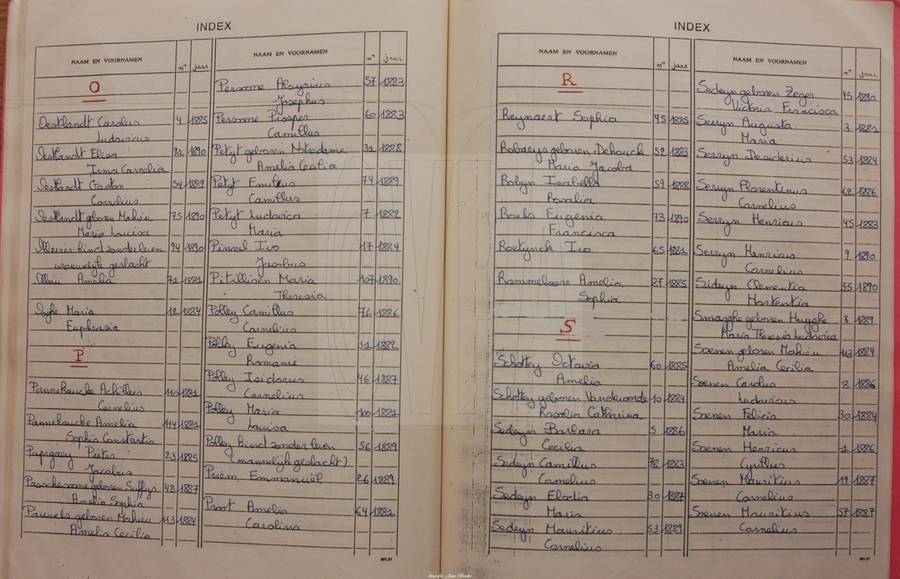 INDEX
NAAM EN VOORNAMEN nr jaar
O
Oestlandt Carolus 4 1885
Ludovicus
Oestlandt Elisa 21 1890
Irma Cornelia
Oestlandt Gaston 54 1889
Cornelius
Oestlandt geboren Mahieu 75 1890
Maria Louisa
kind zonder leven 94 1890
vrouwelijk geslacht
Amelia 71 1881
Maria 12 1884
Euphrasia
P
Pannekoucke Achilles 110 1881
Cornelius
Pannekoucke Amelia 114 1881
Sophia Constantia
Papegaey Pieter 23 1885
Jacobus
Passchesone geboren Suffys 43 1887
Amelia Sophia
Pauwels geboren Mahieu 113 1884
Amelia Cecilia
NAAM EN VOORNAMEN nr jaar
Persome Aloysius 57 1883
Josephus
Persome Prosper 60 1883
Camillus
Petyt geboren Notredame 31 1888
Amelia Cecilia
Petyt Emilius 74 1889
Camillus
Petyt Ludovica 7 1882
Maria
Pinxel Ivo 17 1884
Jacobus
Pitillioen Maria 107 1890
Theresia
Polley Camillus 76 1886
Cornelius
Polley Eugenia 32 1882
Romanie
Polley Isidorus 46 1887
Cornelius
Polley Maria 100 1881
Louisa
Polley kind zonder leven 56 1889
(mannelijk geslacht)
Priem Emmanuël 26 1889
Proot Amelia 64 1881
Carolina
INDEX
NAAM EN VOORNAMEN nr jaar
R
Reynaert Sophia 45 1885
Robaeys geboren Dehouck 52 1883
Maria Jacoba
Robyn Isabella 59 1888
Rosalia
Roels Eugenia 73 1890
Francisca
Roetynck Ivo 65 1881
Rommelaere Amelia 27 1885
Sophia
S
Schottey Octavia 60 1885
Amelia
Schottey geboren Vandewoorde 10 1884
Rosalia Catharina
Sedeyn Barbara 5 1886
Cecilia
Sedeyn Camillus 78 1883
Cornelius
Sedeyn Elodia 30 1887
Maria
Sedeyn Mauritius 53 1889
Cornelius
NAAM EN VOORNAMEN nr jaar
Sedeyn geboren Zeger 45 1890
Victoria Francisca
Serryn Augusta 3 1881
Maria
Serryn Desiderius 53 1884
Serryn Florentinus 62 1886
Cornelius
Serryn Henricus 45 1883
Serryn Henricus 9 1890
Cornelius
Sideyn Clementia 55 1890
Hortentia
Smagghe geboren Huyghe 8 1889
Maria Theresia Ludovica
Soenen geboren Mahieu 113 1884
Amelia Cecilia
Soenen Carolus 8 1886
Ludovicus
Soenen Felicia 30 1884
Maria
Soenen Henricus 1 1886
Cyrillus
Soenen Mauritius 19 1887
Cornelius
Soenen Mauritius 57 1887
Cornelius